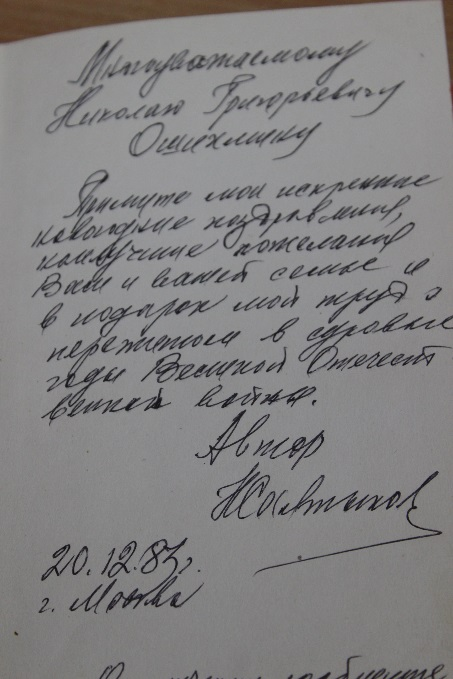 Многоуважаемому
Николаю Григорьевичу
Ошихмину
Примите мои искренние
новогодние поздравления,
наилучшие пожелания
Вам и вашей семье и
в подарок мой труд о
пережитом в суровые
годы Великой Отечест
венной войны.
Автор
НСалтыков
20.12.83г.
г. Москва